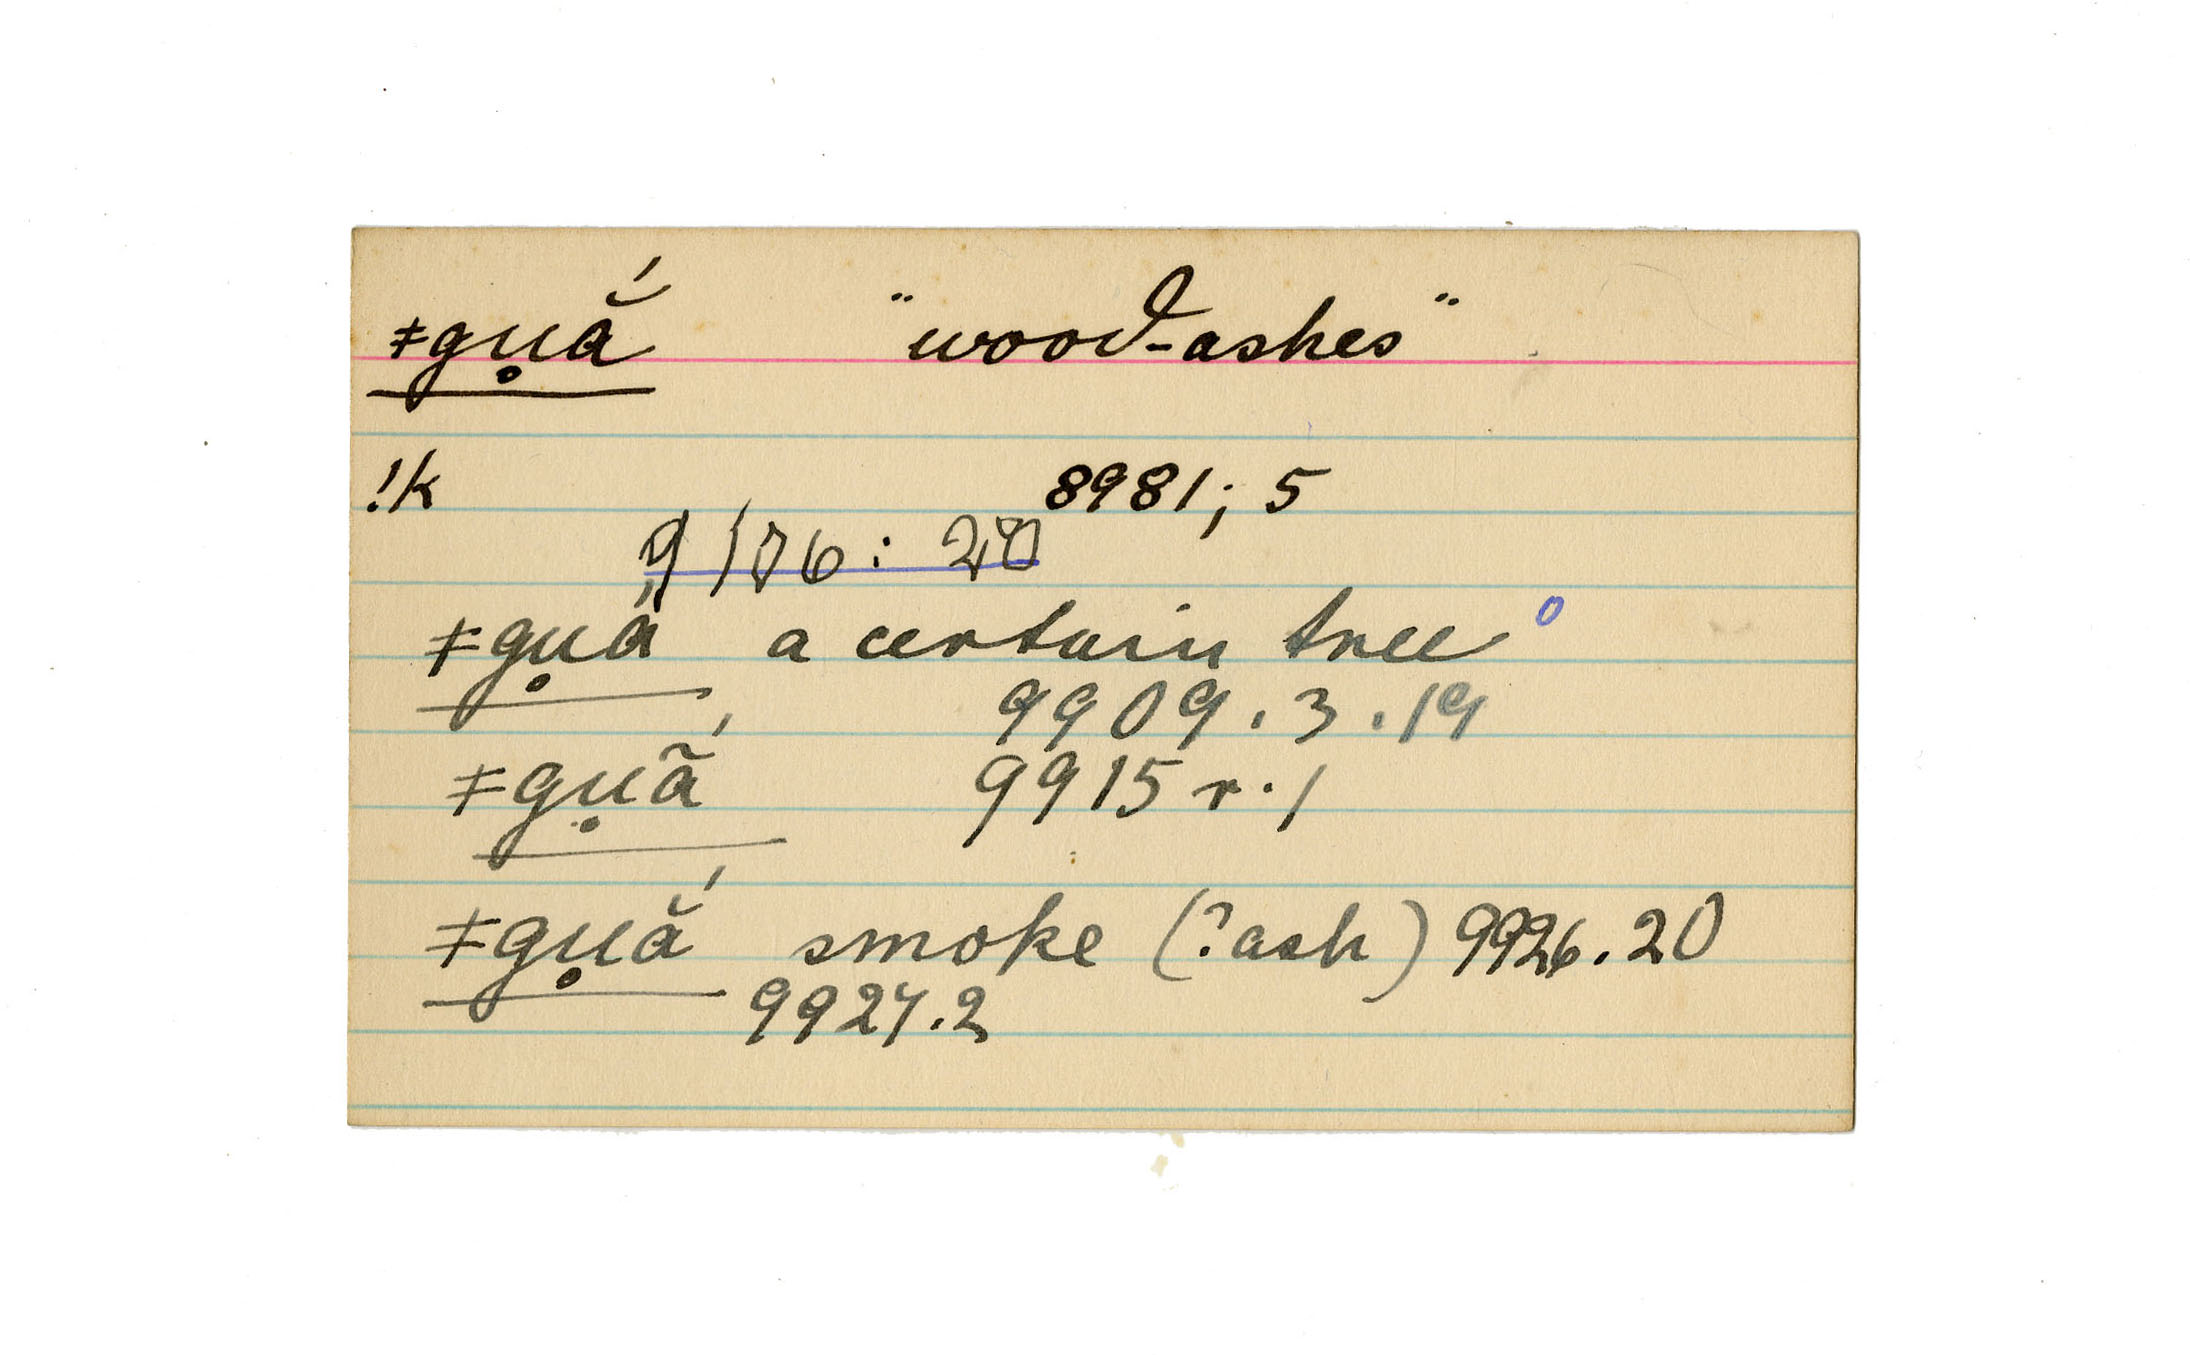 ǂgụắ "wood-ashes"
!k 8981; 5
9106: 20
ǂgụá a certain tree
9909.3.19
ǂgụã́ 9915 r.1
ǂgụắ smoke (?ash) 9926.20
9927.2